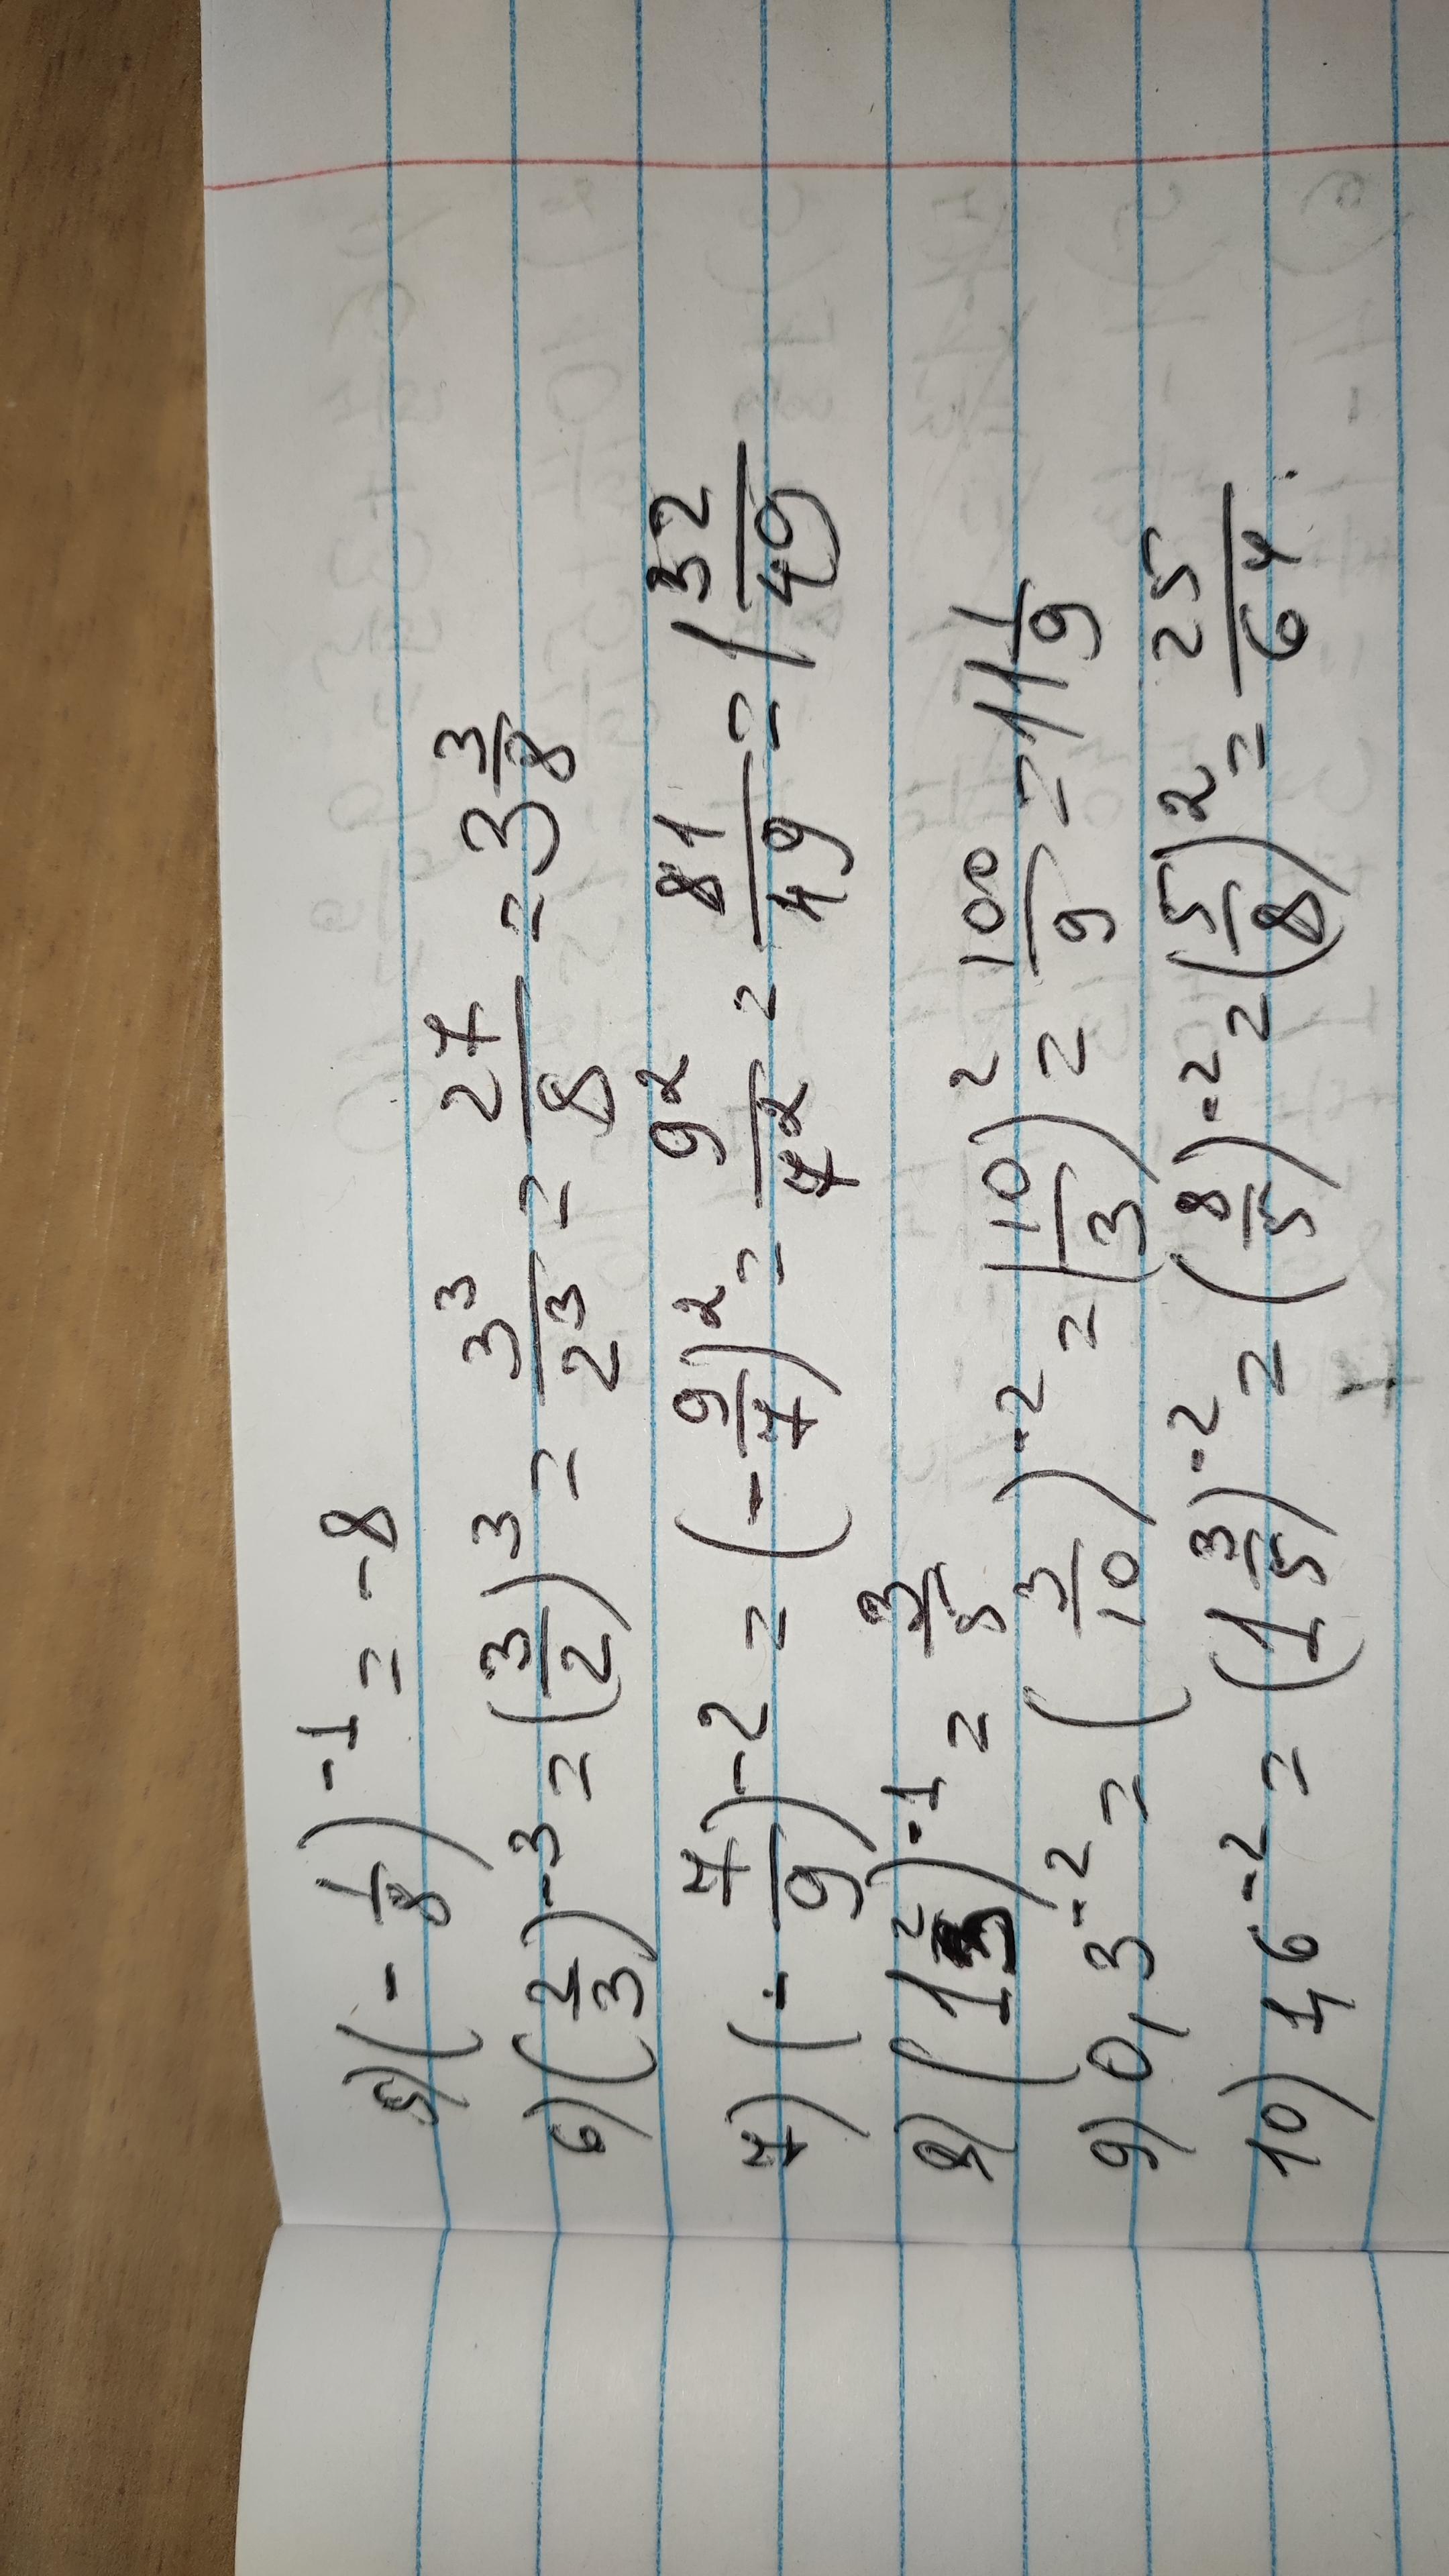 5) (-1/8)^-1 = -8
6) (2/3)^-3 = (3/2)^3 = 3^3/2^3 = 27/8 = 3 3/8
7) (-7/9)^-2 = (-9/7)^2 = 9^2/7^2 = 81/49 = 1 32/49
8) (1 2/3)^-1 = 3/5
9) 0,3^-2 = (3/10)^-2 = (10/3)^2 = 100/9 = 11 1/9
10) 1,6^-2 = (1 3/5)^-2 = (8/5)^-2 = (5/8)^2 = 25/64.